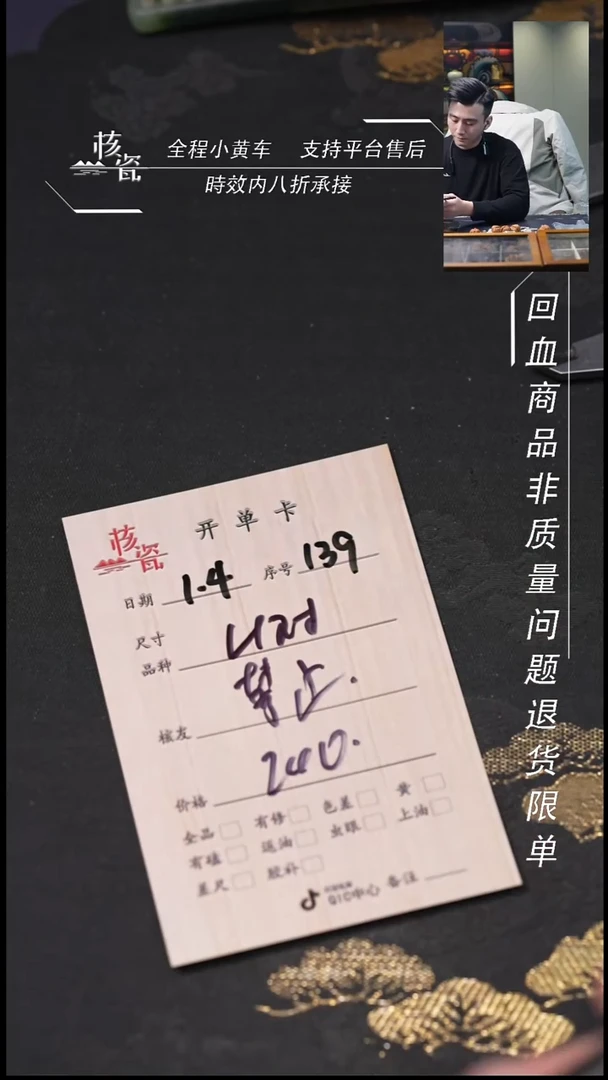 核瓷
全程小黄车 支持平台售后
時效内八折承接
回血商品非质量问题退货限单
核瓷
开单卡
日期 1.4 序号 139
尺寸
品种
核友
价格 240.
全品 有修 色差 黄
有磕 返油 虫眼 上油
差尺 胶补
QIC中心 备注